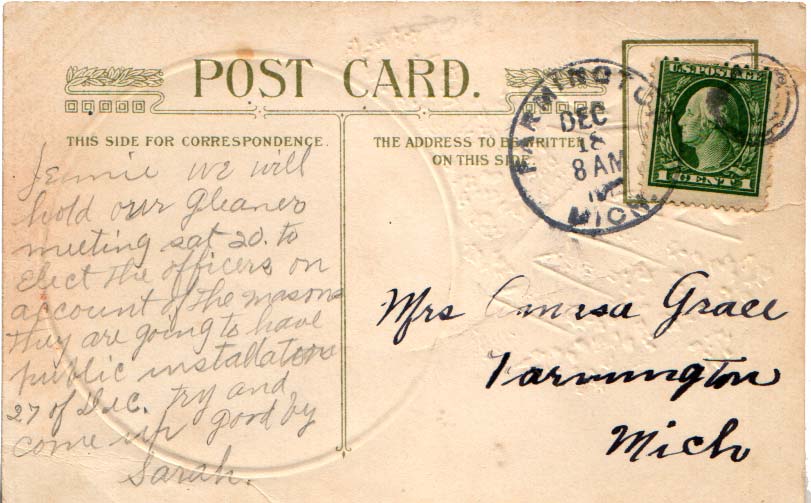 POST CARD.
THIS SIDE FOR CORRESPONDENCE.
THE ADDRESS TO BE WRITTEN
ON THIS SIDE.
FARMINGTO
DEC
18
8 AM
MICH.
U.S. POSTAGE
1 CENT 1
Jennie we will
hold our Gleaner
meeting sat 20. to
Elect the officers on
account of the masons
they are going to have
public installation
27 of Dec. try and
come up good by
Sarah.
Mrs Amasa Grace
Farmington
Mich